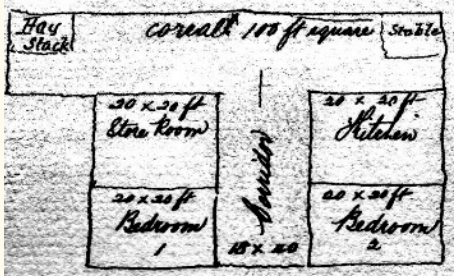 Hay
Stack
corealt 100 ft square
Stable
20 x 20 ft
Store Room
20 x 20 ft
Kitchen
20 x 20 ft
Bedroom
1
15 x 40
20 x 20 ft
Bedroom
2